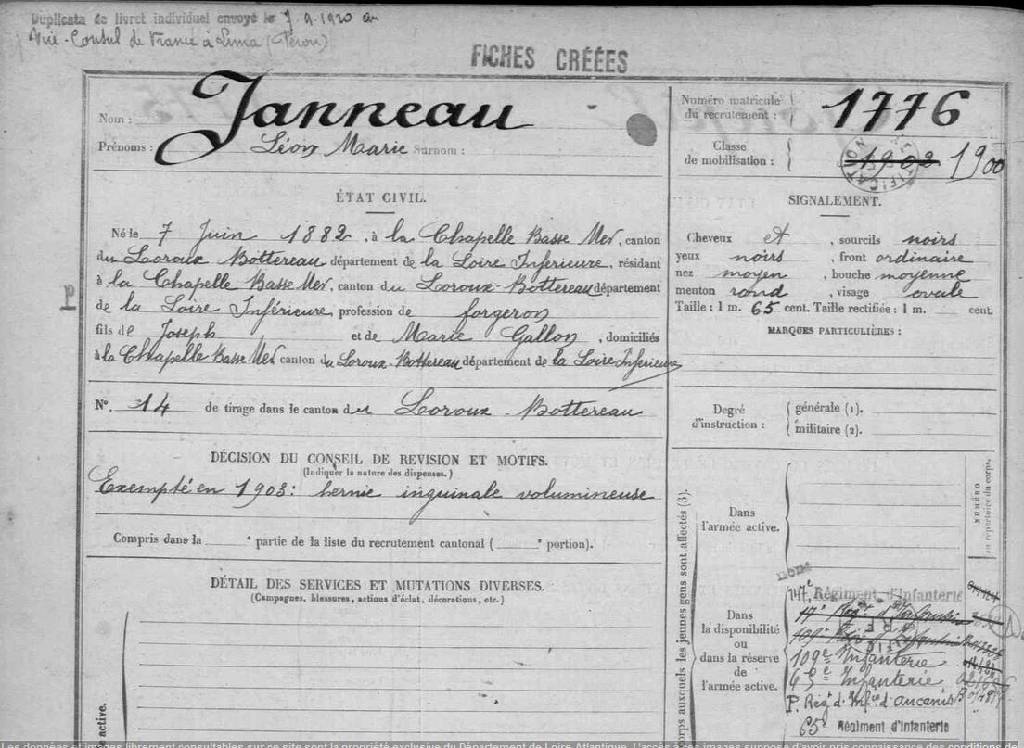 Duplicata de livret individuel envoyé le 7.9.1920 au
Vice-Consul de France à Lima (Pérou)
FICHES CRÉÉES
Nom : Janneau
Prénoms : Léon Marie Surnom :
Numéro matricule du recrutement : 1776
Classe de mobilisation : 1902 1900
ÉTAT CIVIL.
Né le 7 Juin 1882, à la Chapelle Basse Mer, canton
du Loroux Bottereau département de la Loire Inférieure, résidant
à la Chapelle Basse Mer, canton du Loroux-Bottereau département
de la Loire Inférieure, profession de forgeron
fils de Joseph et de Marie Gallon, domiciliés
à la Chapelle Basse Mer canton du Loroux-Bottereau département de la Loire Inférieure
SIGNALEMENT.
Cheveux et, sourcils noirs
yeux noirs, front ordinaire
nez moyen, bouche moyenne
menton rond, visage ovale
Taille : 1 m. 65 cent. Taille rectifiée : 1 m. cent.
MARQUES PARTICULIÈRES :
P
N° 14 de tirage dans le canton du Loroux-Bottereau
Degré d'instruction :
générale (1).
militaire (2).
DÉCISION DU CONSEIL DE REVISION ET MOTIFS.
(Indiquer la nature des dispenses.)
Exempté en 1903 : hernie inguinale volumineuse
Compris dans la e partie de la liste du recrutement cantonal ( e portion).
DÉTAIL DES SERVICES ET MUTATIONS DIVERSES.
(Campagnes, blessures, actions d'éclat, décorations, etc.)
corps auxquels les jeunes gens sont affectés (3).
NUMÉRO
au répertoire du corps.
Dans
l'armée active.
Dans
la disponibilité
ou
dans la réserve
de
l'armée active.
147e Régiment d'Infanterie
109e Infanterie
65e Infanterie
P. Rég. d'Inf.ie d'Ancenis
65e Régiment d'Infanterie
active.
Les données et images librement consultables sur ce site sont la propriété exclusive du Département de Loire-Atlantique. L'accès à ces images suppose d'avoir pris connaissance des conditions de